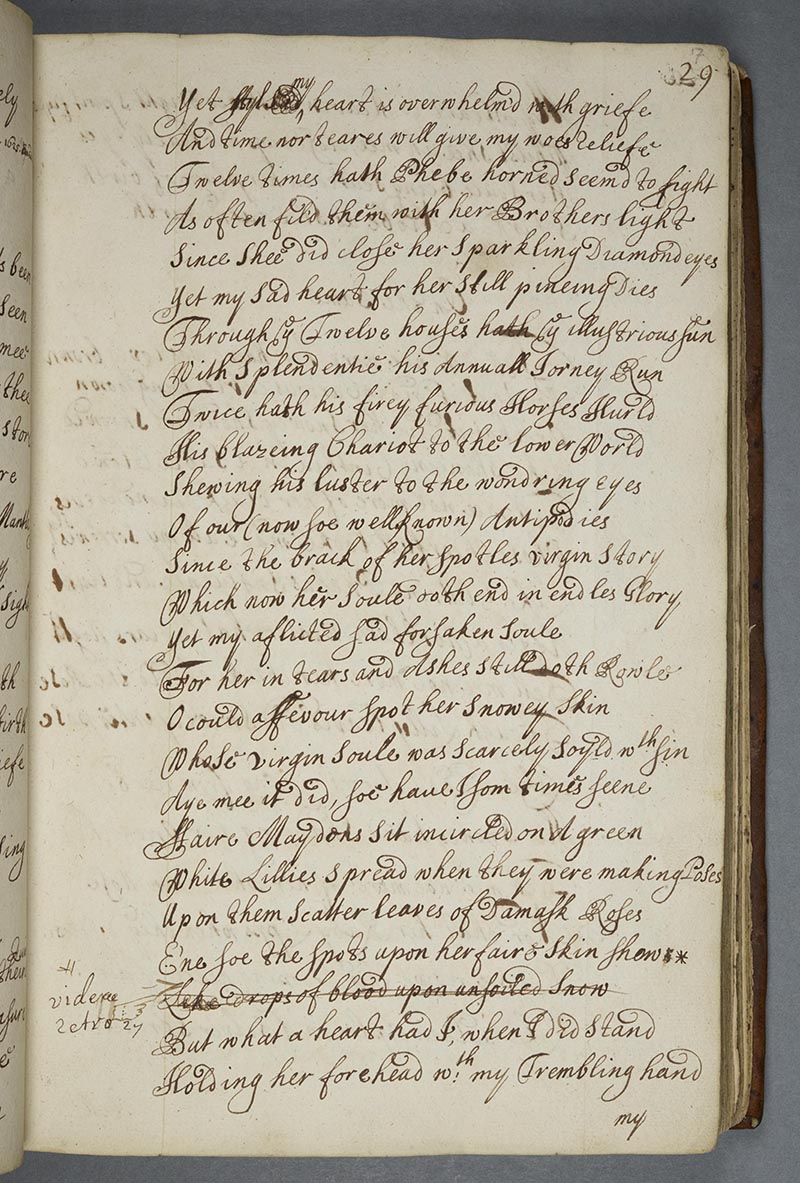 29
Yet my heart is overwhelmd with griefe
And time nor teares will give my woes reliefe
Twelve times hath Phebe horned seemd to fight
As often fild them with her Brothers light
Since Shee did close her Sparkling Diamond eyes
Yet my Sad heart for her Still pineing Dies
Through ye Twelve houses hath ye illustrious Sun
With Splendentie his Annuall Jorney Run
Twice hath his firey furious Horses Hurld
His blazeing Chariot to the lower World
Shewing his luster to the wondring eyes
Of our (now soe well known) Antipodies
Since the brack of her Spotles virgin Story
Which now her Soule doth end in endles Glory
Yet my aflicted Sad forsaken Soule
For her in tears and Ashes Still doth Rowle
O could a ffevour Spot her Snowey Skin
Whose virgin Soule was Scarcely Soyld wth Sin
Aye mee it did, soe have I som times seene
Ffaire Maydens Sit incircled on A green
White Lillies Spread when they were making Poses
Upon them Scatter leaves of Damask Roses
E'ne soe the Spots upon her faire Skin shows *
Like drops of blood upon unsoiled Snow
videre
retro 27
But what a heart had I, when I did Stand
Holding her forehead wth my Trembling hand
my